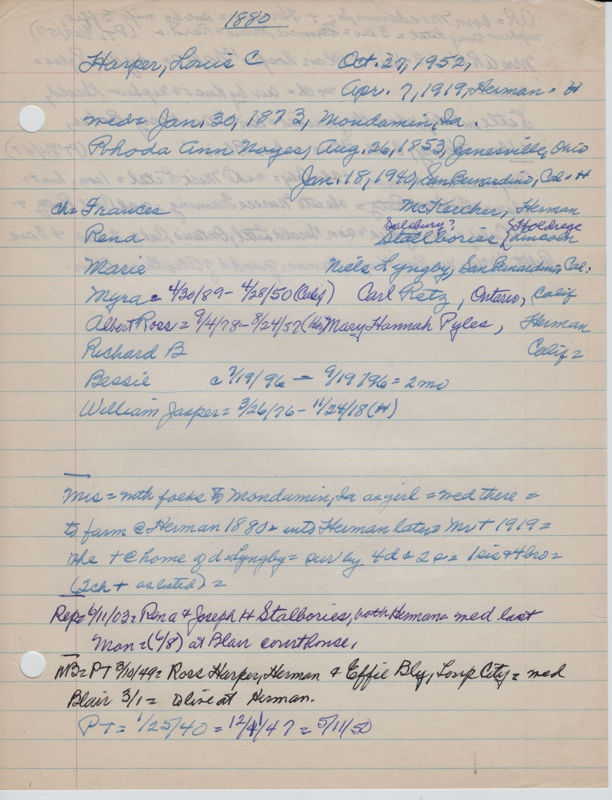 1880
Harper, Louis C Oct. 27, 1952,
Apr. 7, 1919, Herman = H
med = Jan. 30, 1873, Mondamin, Ia.
Rhoda Ann Noyes, Aug. 26, 1853, Janesville, Ohio
Jan. 18, 1940, San Bernardino, Cal = H
ch = Frances McKercher, Herman
Salsbury? Holdrege
Rena Stalbories, Lincoln
Marie Niels Lyngby, San Bernardino, Cal.
Myra = 4/30/89 - 4/28/50 (Calif) Carl Retz, Ontario, Calif
Albert Ross = 9/4/78 - 8/24/57 Mary Hannah Pyles, Herman
Richard B Calif =
Bessie c 7/19/96 — 9/19/96 = 2 mo
William Jasper = 3/26/76 - 11/24/18 (H)
Mrs = with folks to Mondamin, Ia as girl = med there =
to farm @ Herman 1880 = into Herman later = Mr + 1919 =
she + @ home of d = Lyngby = sur by 4 d & 2 s = 1 sis & 4 bro =
(2 ch + as listed) =
Rep = 6/11/03 = Rena & Joseph H Stalbories, both Herman = med last
Mon = (6/8) at Blair courthouse.
NB = PT 3/10/49 = Ross Harper, Herman & Effie Bly, Loup City = med
Blair 3/1 = to live at Herman.
PT = 1/25/40 = 12/11/47 = 5/11/50